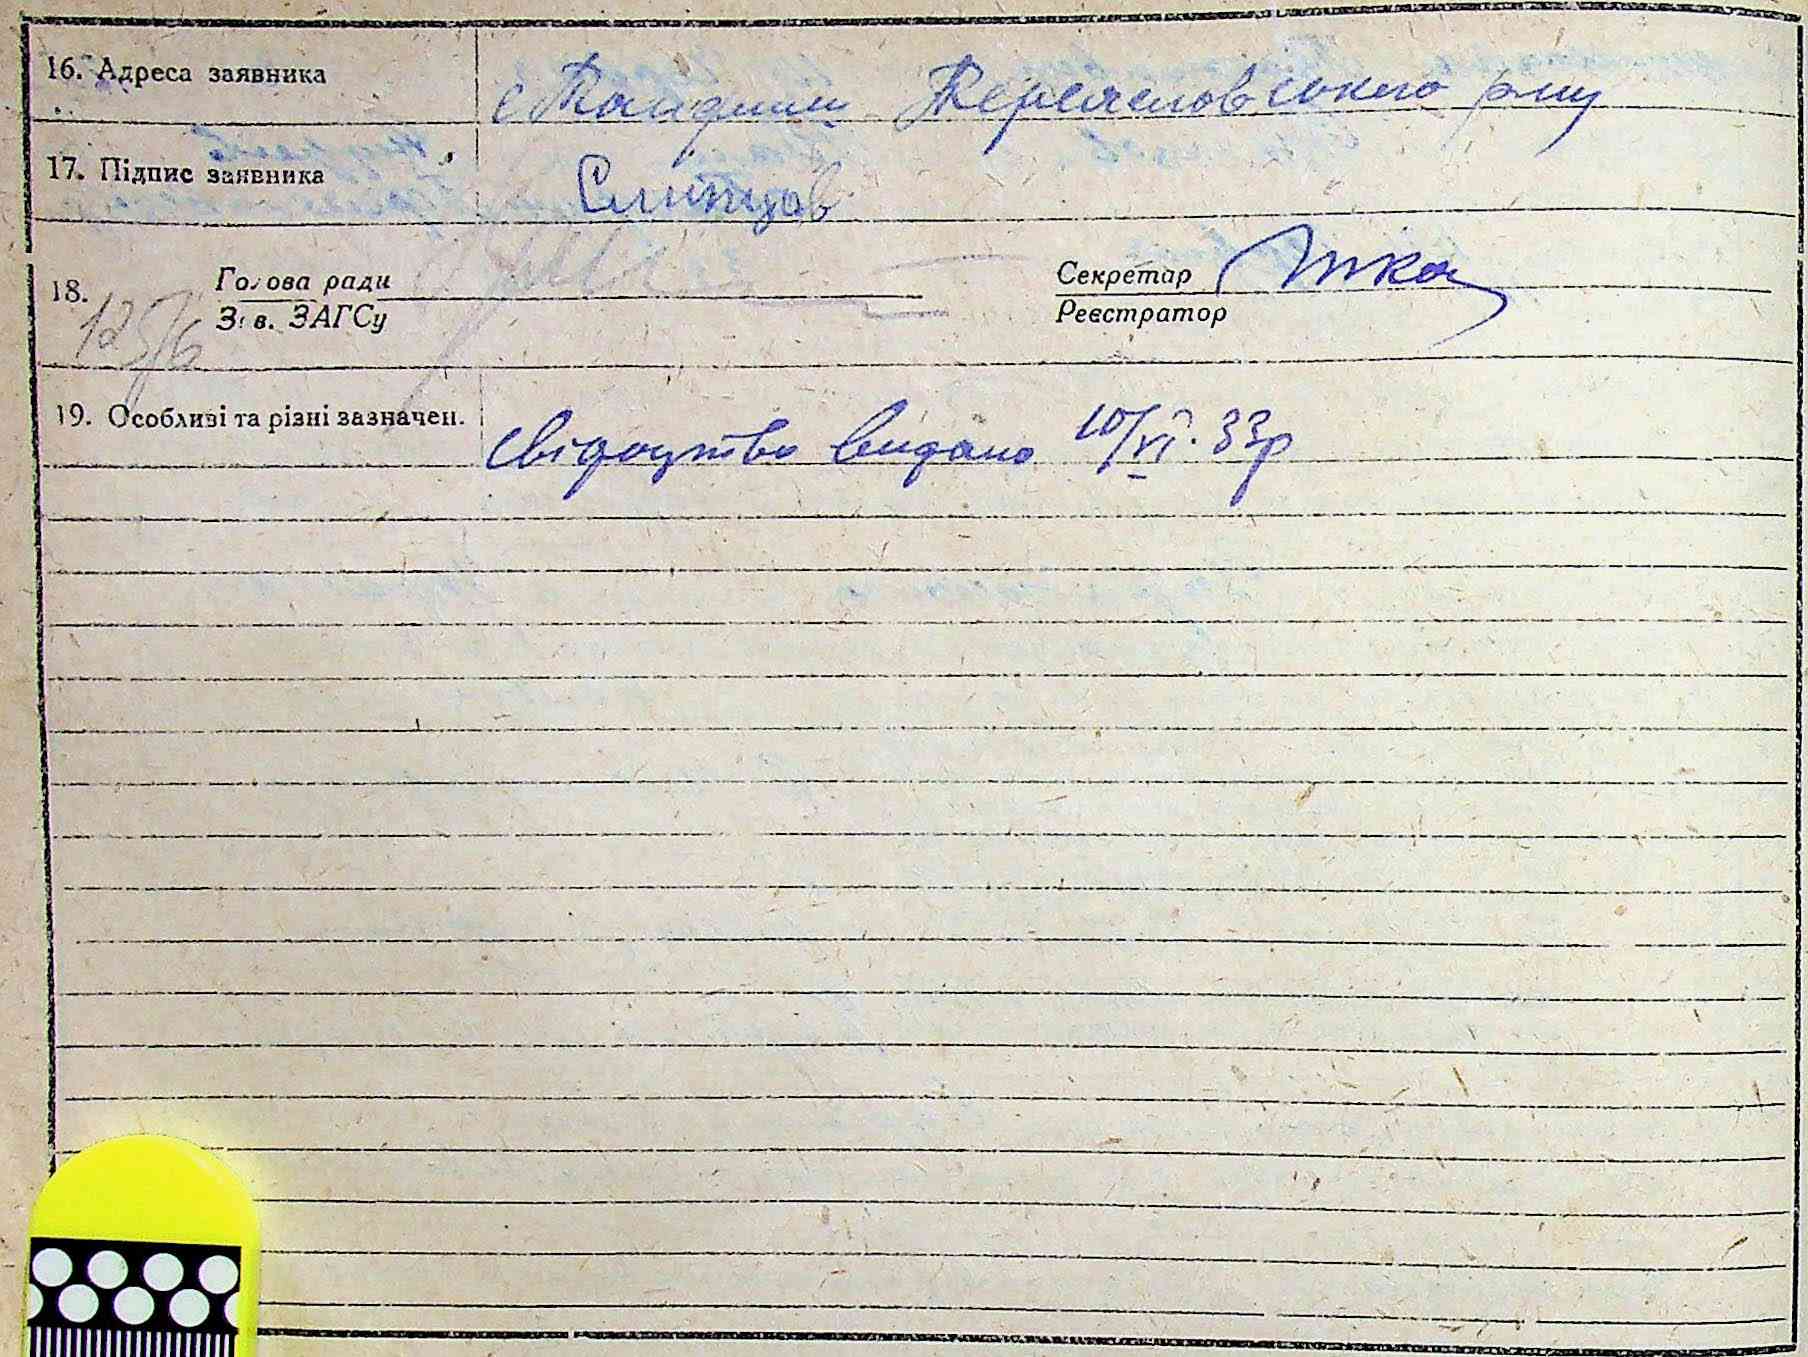 16. Адреса заявника с Пандими Переясловського р-ну
17. Підпис заявника Слипцов
18. Голова ради Секретар Тка
Зав. ЗАГСу Реєстратор
12/6
19. Особливі та різні зазначен. свідоцтво видано 10/VI. 33р